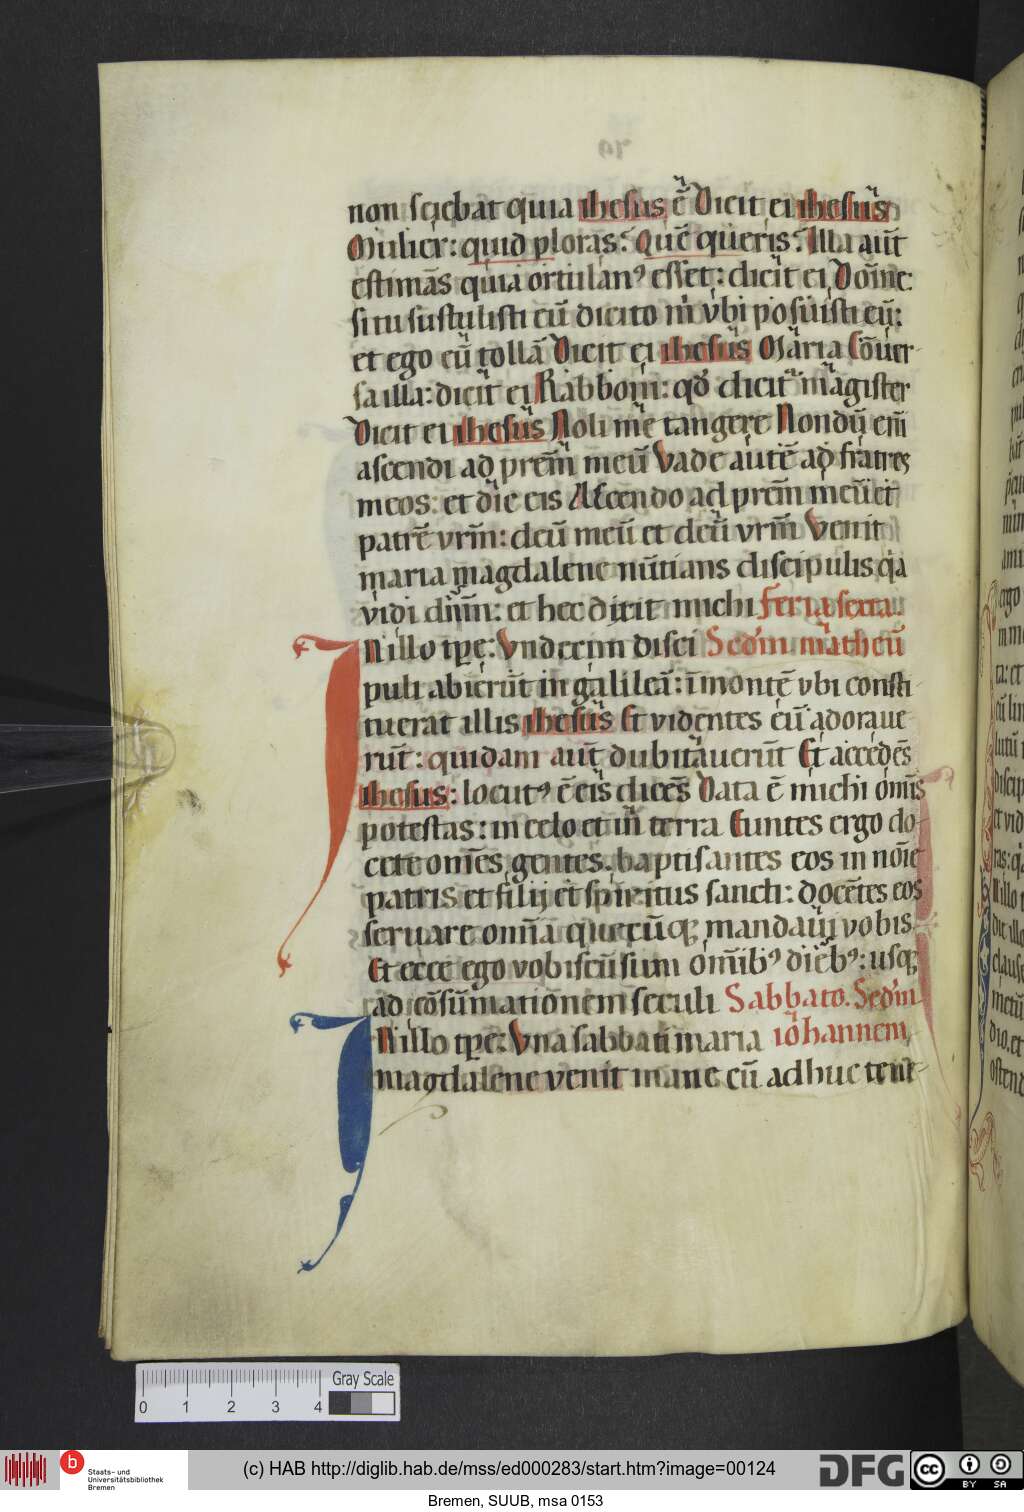 non sciebat quia ihesus ē Dicit ei ihesus
Mulier: quid ploras? Quē queris? Illa aut̄
estimās quia ortulanꝰ esset: dicit ei Dom̄e:
si tu sustulisti eū dicito m̄ vbi posuisti eū:
et ego eū tollā Dicit ei ihesus Maria Cōuer-
sa illa: dicit ei Rabboni: qd̄ dicit̄ magister
Dicit ei ihesus Noli me tangere Nondū em̄
ascendi ad prēm meū Vade autē ad fratres
meos: et dic eis Ascendo ad prēm meū et
patrē vrm̄: deū meū et deū vrm̄ Venit
maria magdalene nūtians discipulis q̄a
vidi dn̄m: et hec dixit michi Feria sexta.
INillo tp̄e: Vndecim disci Scd̄m matheū
puli abierūt in galileā: ī montē vbi consti-
tuerat illis ihesus Et videntes eū adoraue-
rūt: quidam aut̄ dubitauerūt Et accedēs
ihesus: locutꝰ ē eis dicēs Data ē michi om̄is
potestas: in celo et in terra Euntes ergo do-
cete om̄es gentes. baptisantes eos in nōīe
patris et filij et spiritus sancti: docētes eos
seruare omn̄a quecūqꝫ mandaui vobis
Et ecce ego vobiscū sum om̄ibꝰ diebꝰ: usqꝫ
ad cōsūmationem seculi Sabbato. Scd̄m
INillo tp̄e: Vna sabbati maria iohannem
magdalene venit mane cū adhuc tene-
0 1 2 3 4 Gray Scale
b Staats- und Universitätsbibliothek Bremen
(c) HAB http://diglib.hab.de/mss/ed000283/start.htm?image=00124
DFG cc BY SA
Bremen, SUUB, msa 0153